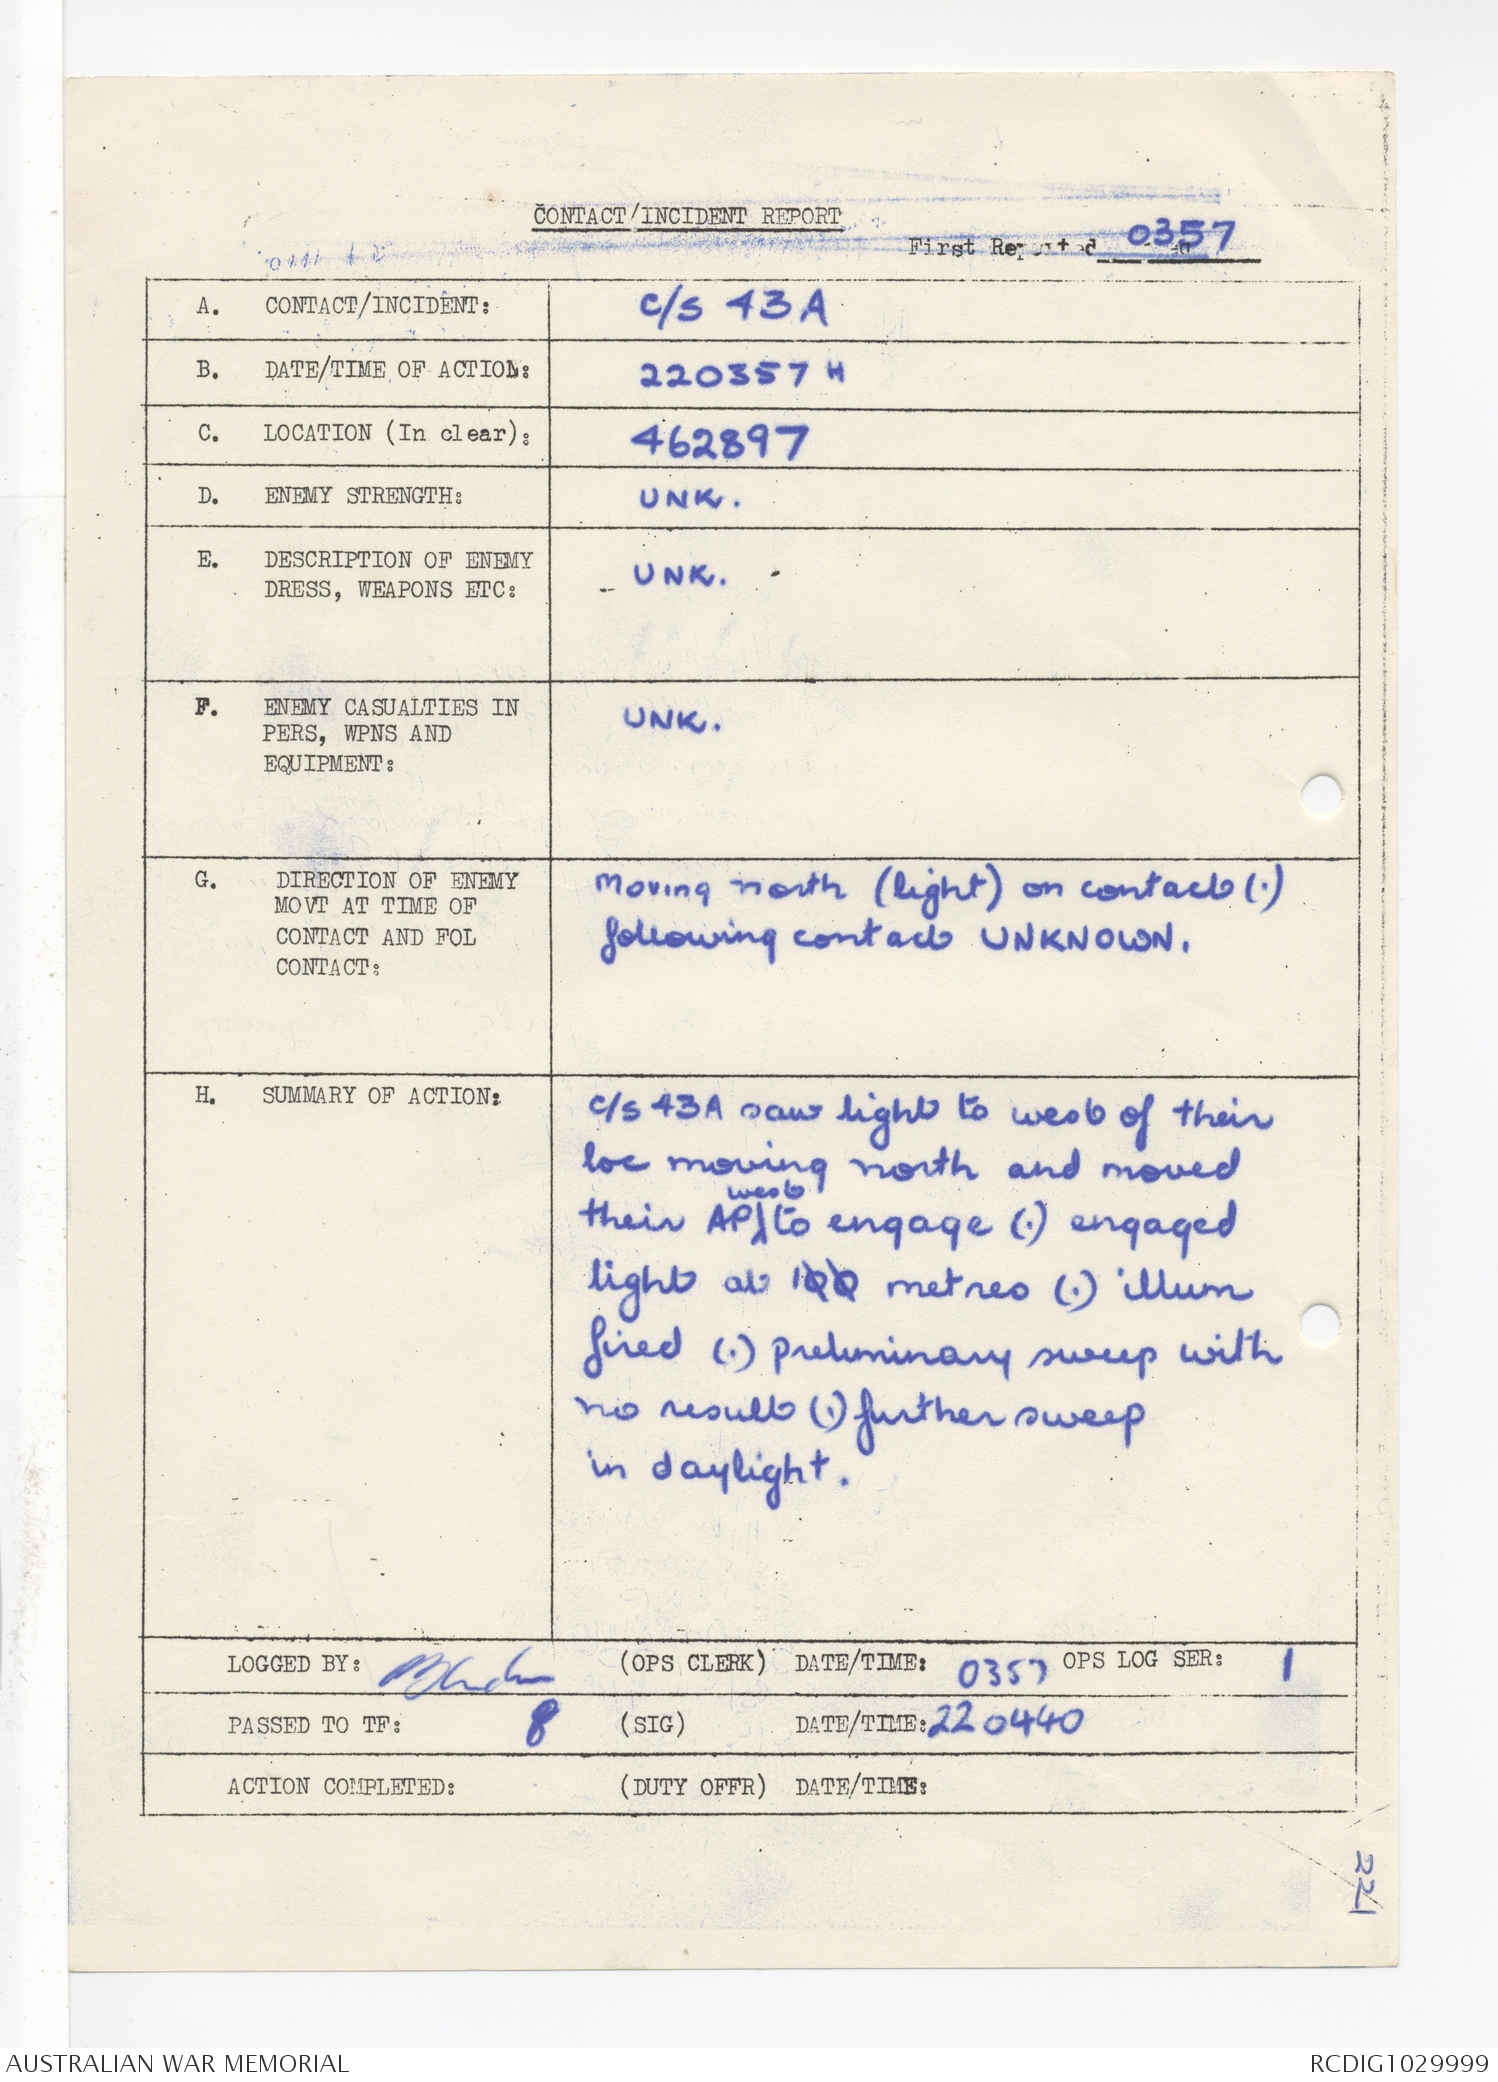 CONTACT/INCIDENT REPORT
First Reported 0357
A. CONTACT/INCIDENT: c/s 43A
B. DATE/TIME OF ACTION: 220357 H
C. LOCATION (In clear): 462897
D. ENEMY STRENGTH: UNK.
E. DESCRIPTION OF ENEMY
DRESS, WEAPONS ETC:
UNK.
F. ENEMY CASUALTIES IN
PERS, WPNS AND
EQUIPMENT:
UNK.
G. DIRECTION OF ENEMY
MOVT AT TIME OF
CONTACT AND FOL
CONTACT:
Moving north (light) on contact (.)
following contact UNKNOWN.
H. SUMMARY OF ACTION:
c/s 43A saw light to west of their
loc moving north and moved
their AP west to engage (.) engaged
light at 100 metres (.) illum
fired (.) preliminary sweep with
no result (.) further sweep
in daylight.
LOGGED BY: (OPS CLERK) DATE/TIME: 0357 OPS LOG SER: 1
PASSED TO TF: (SIG) DATE/TIME: 220440
ACTION COMPLETED: (DUTY OFFR) DATE/TIME:
221
AUSTRALIAN WAR MEMORIAL
RCDIG1029999